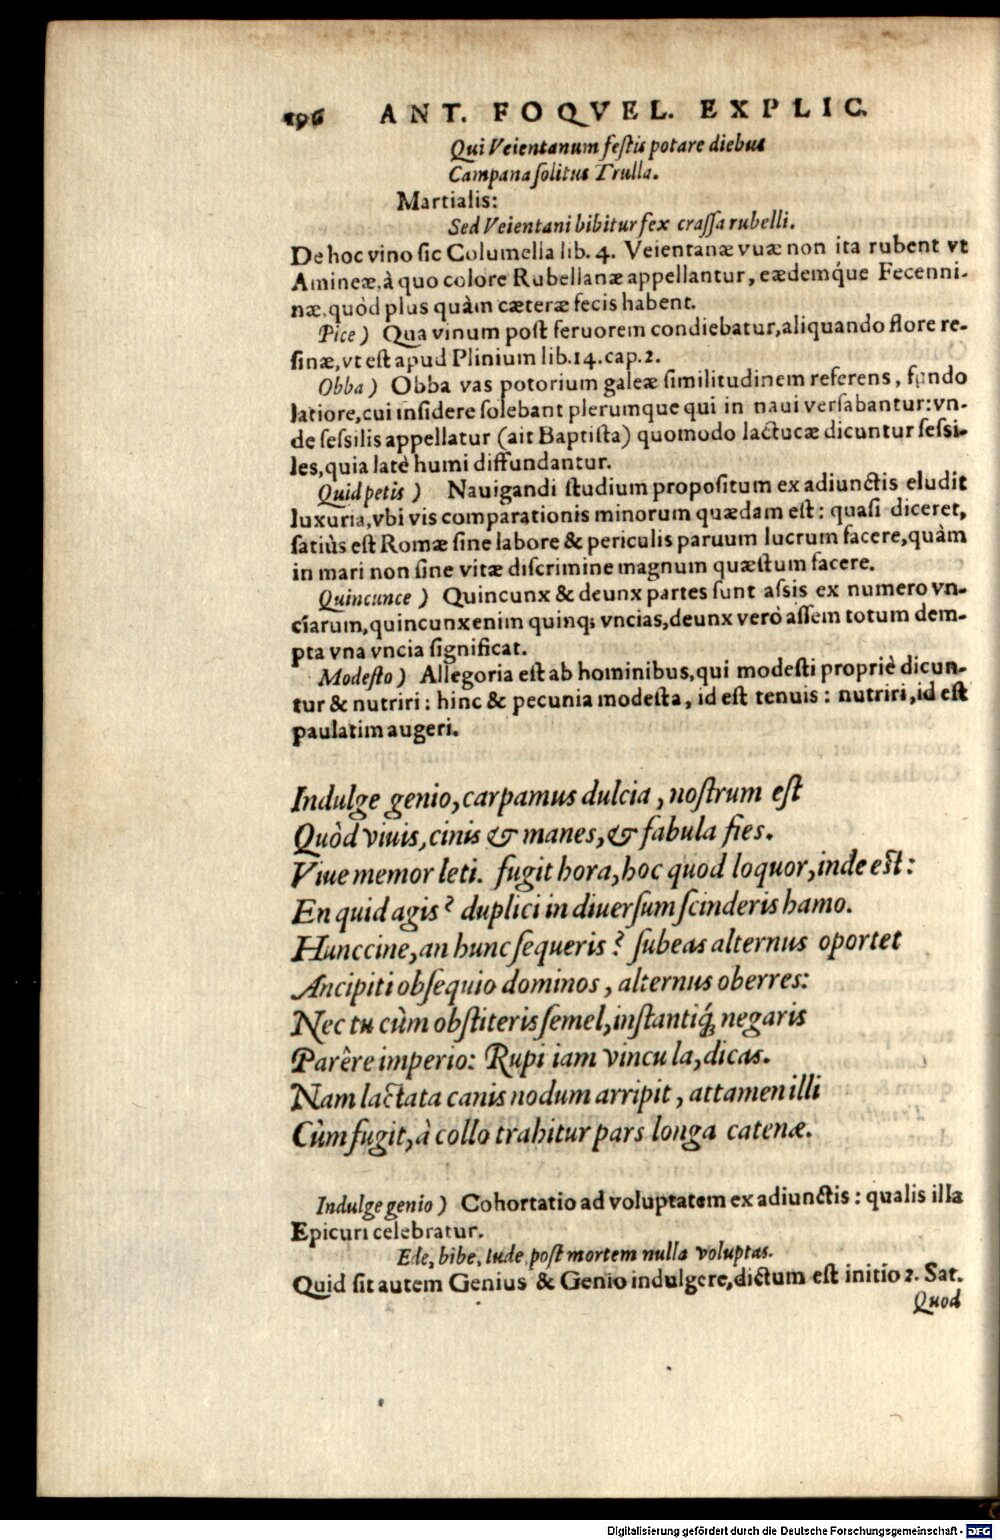 196 ANT. FOQVEL. EXPLIC.
Qui Veientanum festis potare diebus
Campana solitus Trulla.
Martialis:
Sed Veientani bibitur fex crassa rubelli.
De hoc vino sic Columella lib. 4. Veientanæ vuæ non ita rubent vt
Amineæ, à quo colore Rubellanæ appellantur, eædemq́ue Fecenni-
næ, quòd plus quàm cæteræ fecis habent.
Pice) Qua vinum post feruorem condiebatur, aliquando flore re-
sinæ, vt est apud Plinium lib. 14. cap. 2.
Obba) Obba vas potorium galeæ similitudinem referens, fundo
latiore, cui insidere solebant plerumque qui in naui versabantur: vn-
de sessilis appellatur (ait Baptista) quomodo lactucæ dicuntur sessi-
les, quia latè humi diffundantur.
Quid petis) Nauigandi studium propositum ex adiunctis eludit
luxuria, vbi vis comparationis minorum quædam est: quasi diceret,
satiùs est Romæ sine labore & periculis paruum lucrum facere, quàm
in mari non sine vitæ discrimine magnum quæstum facere.
Quincunce) Quincunx & deunx partes sunt assis ex numero vn-
ciarum, quincunx enim quinq; vncias, deunx verò assem totum dem-
pta vna vncia significat.
Modesto) Allegoria est ab hominibus, qui modesti propriè dicun-
tur & nutriri: hinc & pecunia modesta, id est tenuis: nutriri, id est
paulatim augeri.
Indulge genio, carpamus dulcia, nostrum est
Quòd viuis, cinis & manes, & fabula fies.
Viue memor leti. fugit hora, hoc quod loquor, inde est:
En quid agis? duplici in diuersum scinderis hamo.
Hunccine, an hunc sequeris? subeas alternus oportet
Ancipiti obsequio dominos, alternus oberres:
Nec tu cùm obstiteris semel, instantiq́; negaris
Parêre imperio: Rupi iam vincula, dicas.
Nam lactata canis nodum arripit, attamen illi
Cùm fugit, à collo trahitur pars longa catenæ.
Indulge genio) Cohortatio ad voluptatem ex adiunctis: qualis illa
Epicuri celebratur.
Ede, bibe, lude, post mortem nulla voluptas.
Quid sit autem Genius & Genio indulgere, dictum est initio 2. Sat.
Quod
Digitalisierung gefördert durch die Deutsche Forschungsgemeinschaft - DFG